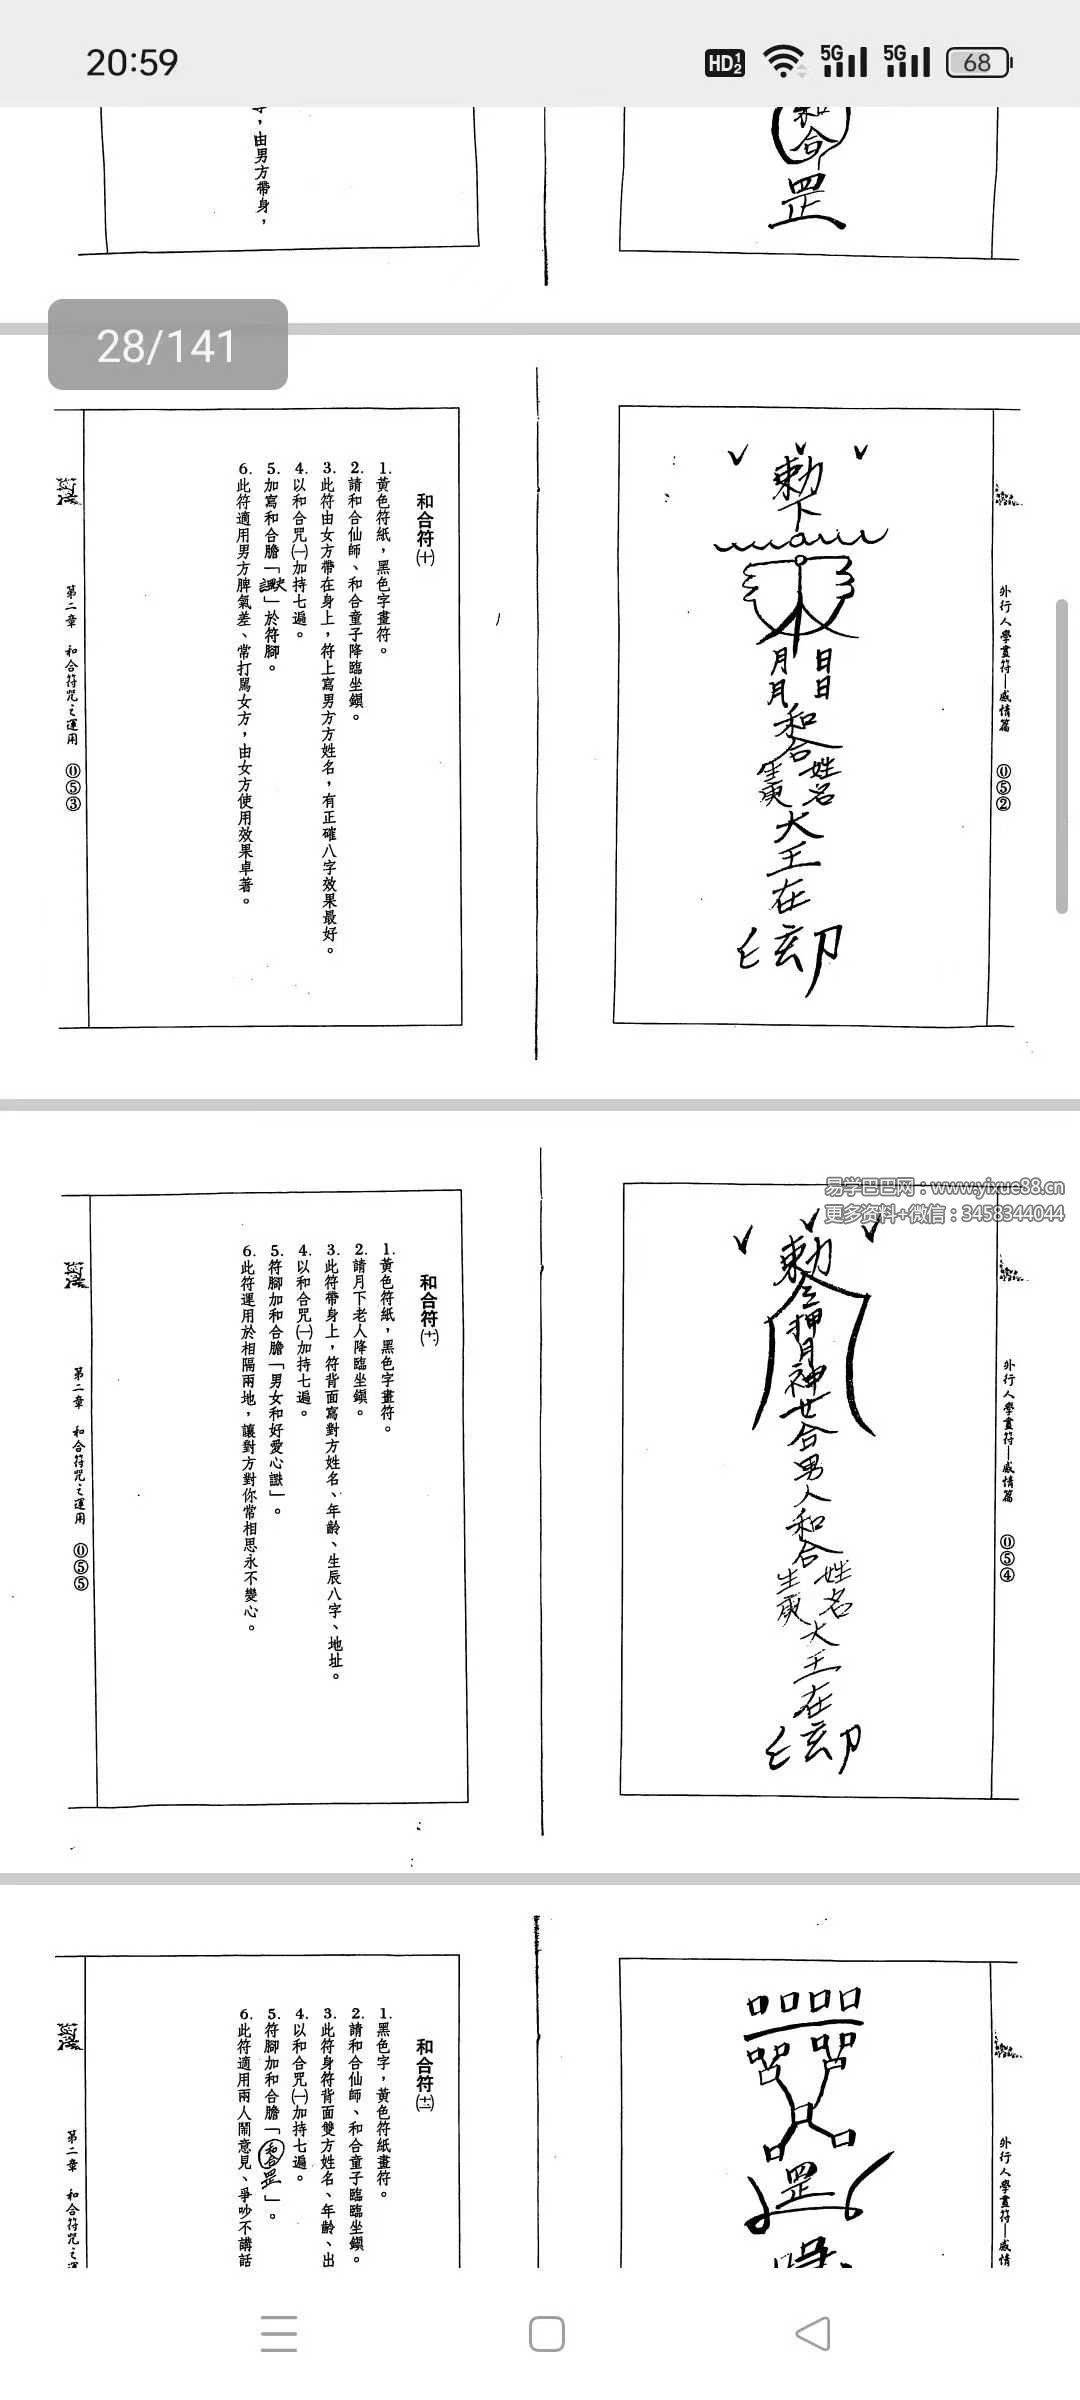 20:59
HD 1 2
5G
5G
68
合
罡
，由男方帶身，
28/141
外行人學畫符—感情篇
052
勅
下
日月
日月
和
合
姓名
生庚
大
王
在
和合符(十)
1.黃色符紙，黑色字畫符。
2.請和合仙師、和合童子降臨坐鎮。
3.此符由女方帶在身上，符上寫男方方姓名，有正確八字效果最好。
4.以和合咒(一)加持七遍。
5.加寫和合膽「」於符腳。
6.此符適用男方脾氣差、常打罵女方，由女方使用效果卓著。
第二章 和合符咒之運用
053
易学巴巴网：www.yixue88.cn
更多资料+微信：3458344044
外行人學畫符—感情篇
054
勅
押
月
神
世
合
男
人
和
合
姓名
生庚
大
王
在
和合符(十一)
1.黃色符紙，黑色字畫符。
2.請月下老人降臨坐鎮。
3.此符帶身上，符背面寫對方姓名、年齡、生辰八字、地址。
4.以和合咒(一)加持七遍。
5.符腳加和合膽「男女和好愛心」。
6.此符運用於相隔兩地，讓對方對你常相思永不變心。
第二章 和合符咒之運用
055
外行人學畫符—感情
罡
和合符(十二)
1.黑色字，黃色符紙畫符。
2.請和合仙師、和合童子臨臨坐鎮。
3.此符身符背面雙方姓名、年齡、出
4.以和合咒(一)加持七遍。
5.符腳加和合膽「和合罡」。
6.此符適用兩人鬧意見、爭吵不講話
第二章 和合符咒之運